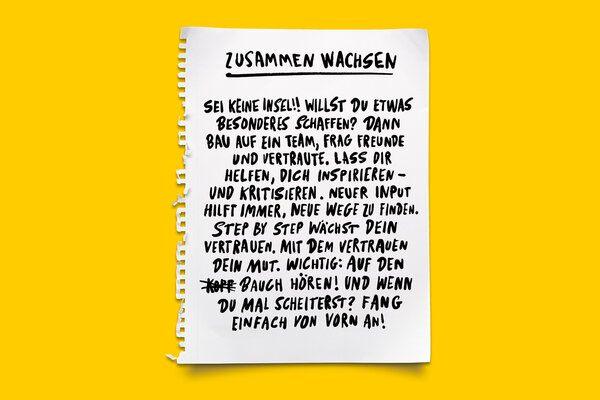 ZUSAMMEN WACHSEN
SEI KEINE INSEL!! WILLST DU ETWAS
BESONDERES SCHAFFEN? DANN
BAU AUF EIN TEAM, FRAG FREUNDE
UND VERTRAUTE. LASS DIR
HELFEN, DICH INSPIRIEREN –
UND KRITISIEREN. NEUER INPUT
HILFT IMMER, NEUE WEGE ZU FINDEN.
STEP BY STEP WÄCHST DEIN
VERTRAUEN. MIT DEM VERTRAUEN
DEIN MUT. WICHTIG: AUF DEN
KOPF BAUCH HÖREN! UND WENN
DU MAL SCHEITERST? FANG
EINFACH VON VORN AN!